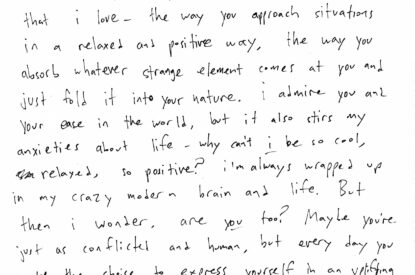 that i love - the way you approach situations
in a relaxed and positive way, the way you
absorb whatever strange element comes at you and
just fold it into your nature. i admire you and
your ease in the world, but it also stirs my
anxieties about life - why can't i be so cool,
relaxed, so positive? i'm always wrapped up
in my crazy modern brain and life. But
then i wonder, are you too? Maybe you're
just as conflicted and human, but every day you
the choice to express yourself in an uplifting